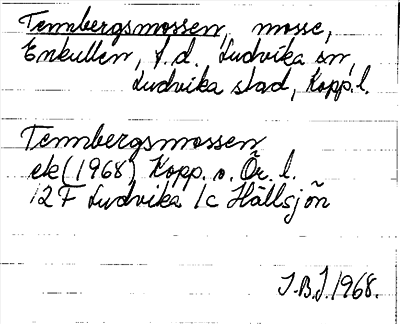 Tennbergsmossen, mosse,
Enkullen, f.d. Ludvika sn,
Ludvika stad, Kopp.l.
Tennbergsmossen
ek (1968) Kopp. o. Ör. l.
12F Ludvika 1c Hällsjön
J.B.J. 1968.